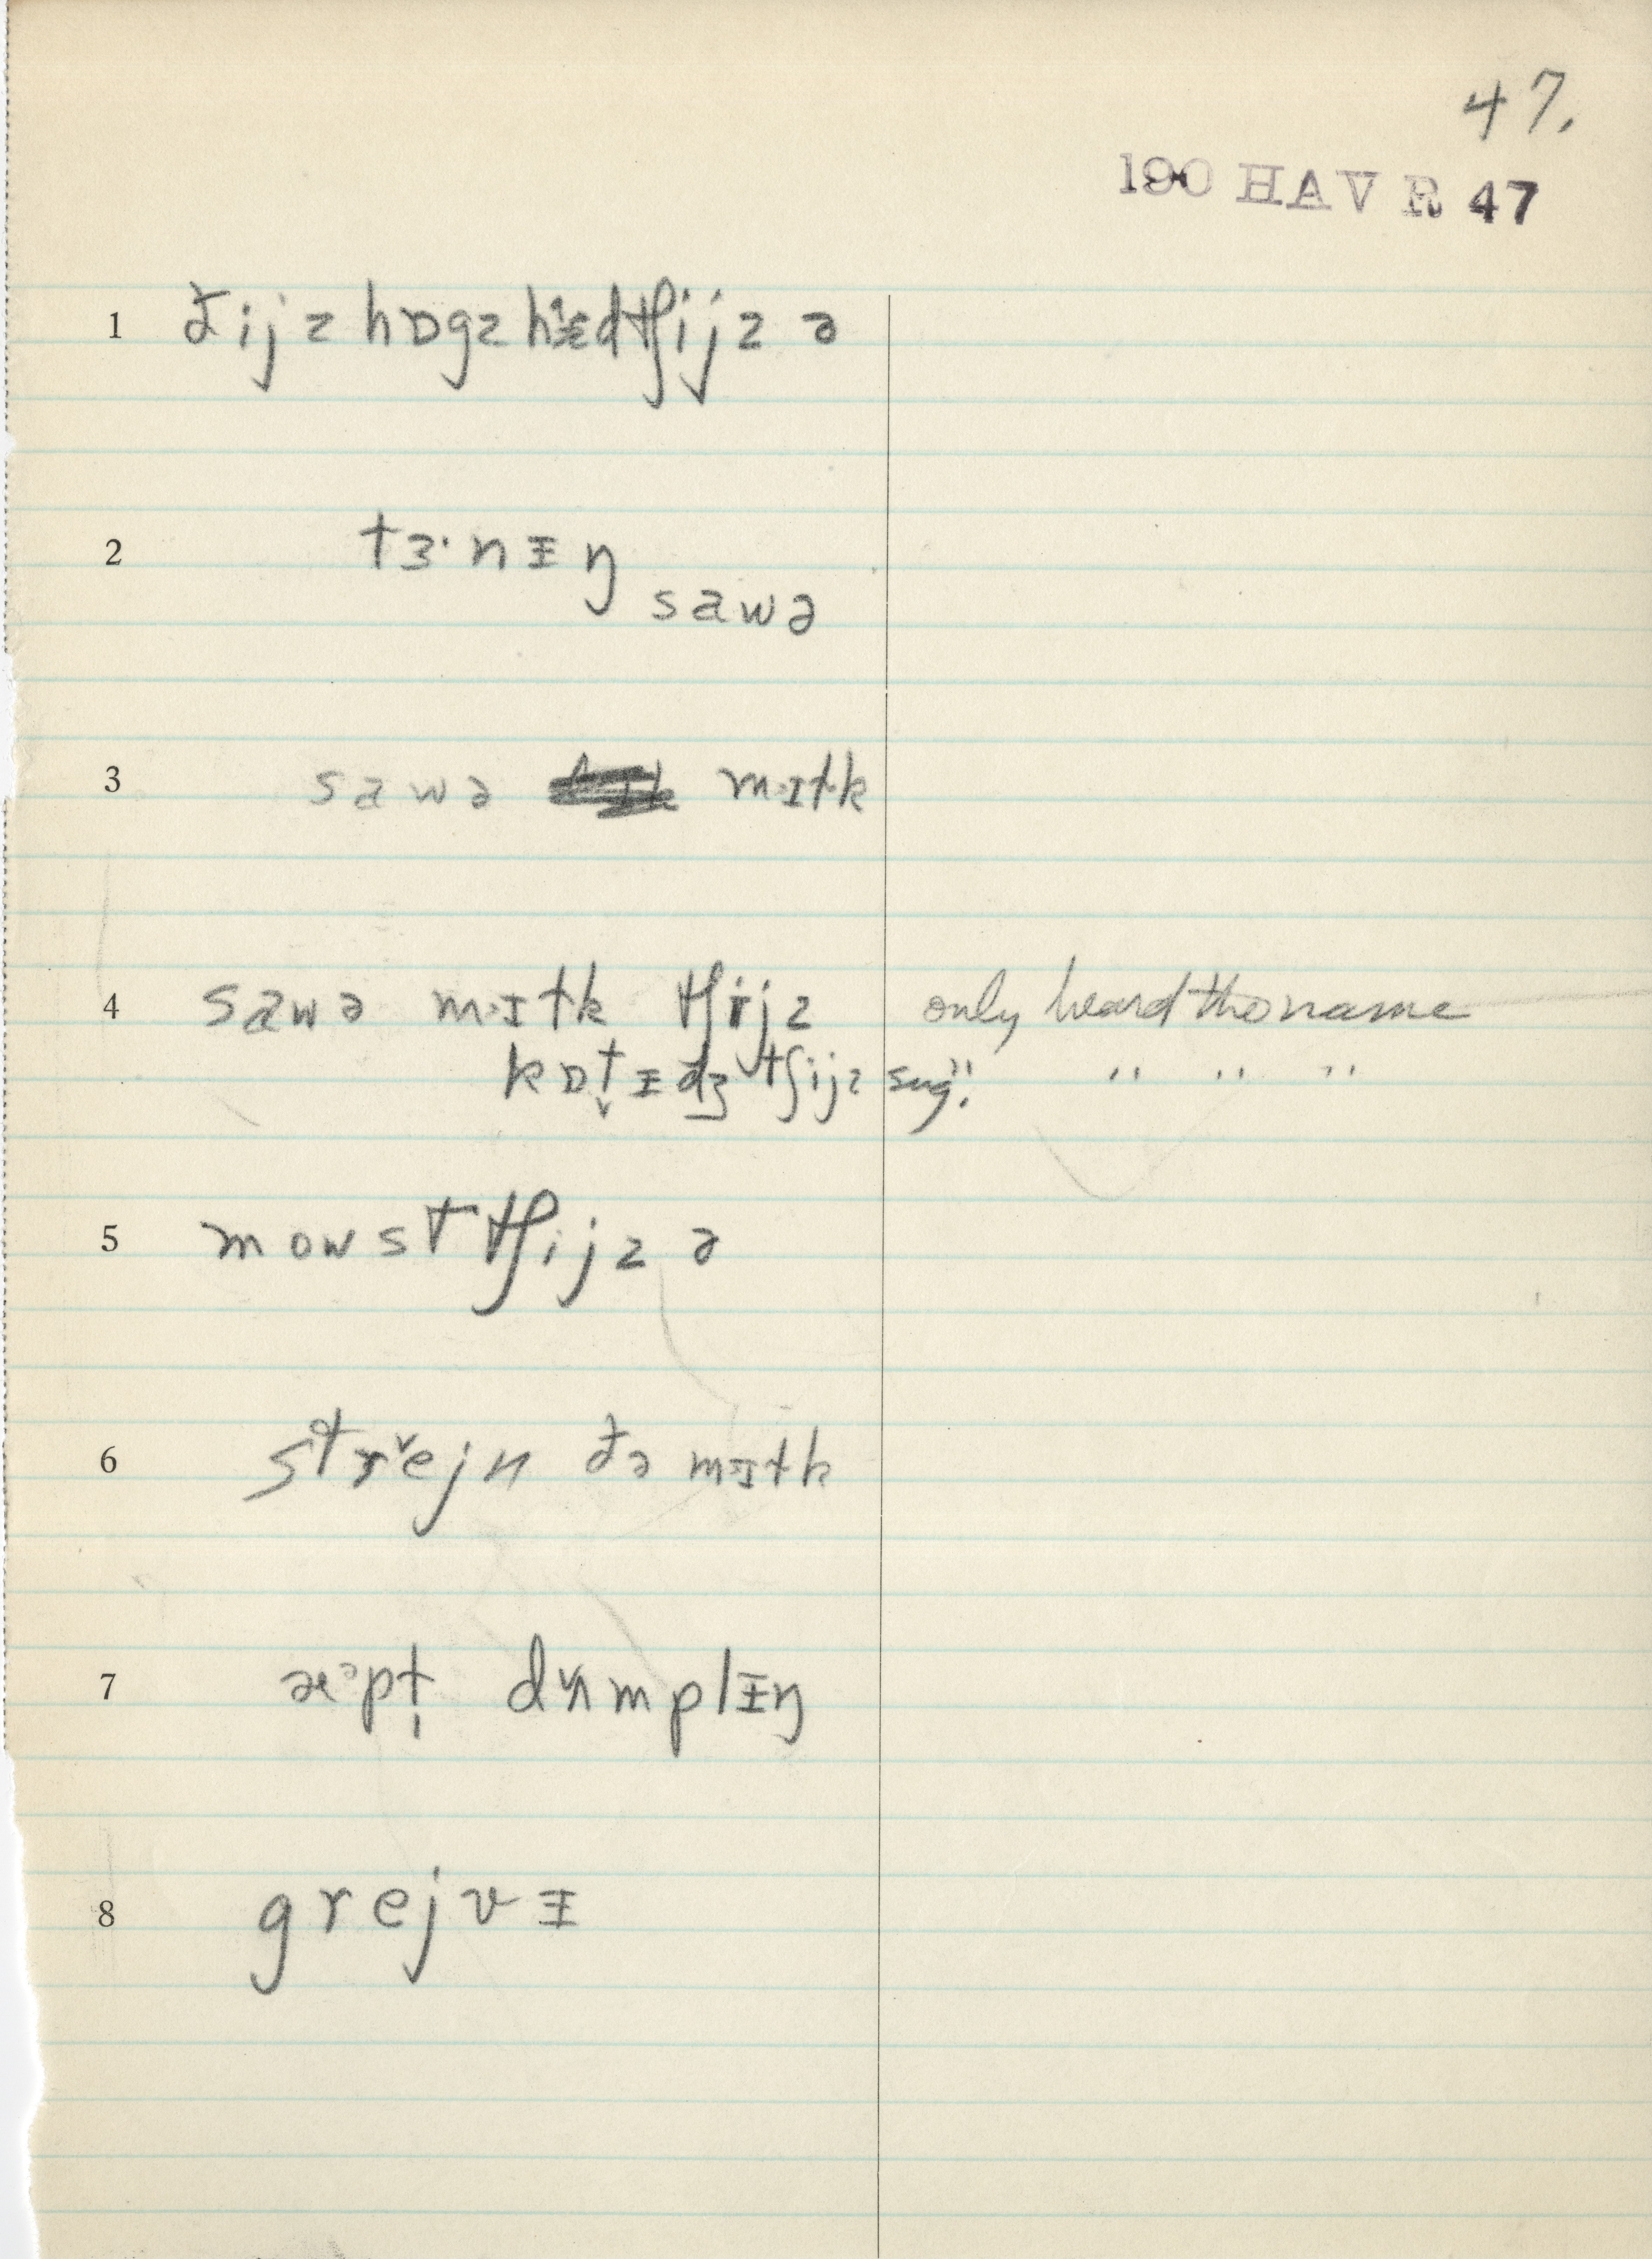 47.
190 HAV R 47
1 ðijz hɒgz hɛdtʃijz ə
2 tɜ·nɪŋ
sawə
3 sawə mɪtk
4 sawə mɪtk tʃijz only heard the name
kɒtɪdʒ tʃijz sug. " " "
5 mowst tʃijz ə
6 strejn ðə mɪtk
7 æᵊpt dʌmplɪŋ
8 grejvɪ